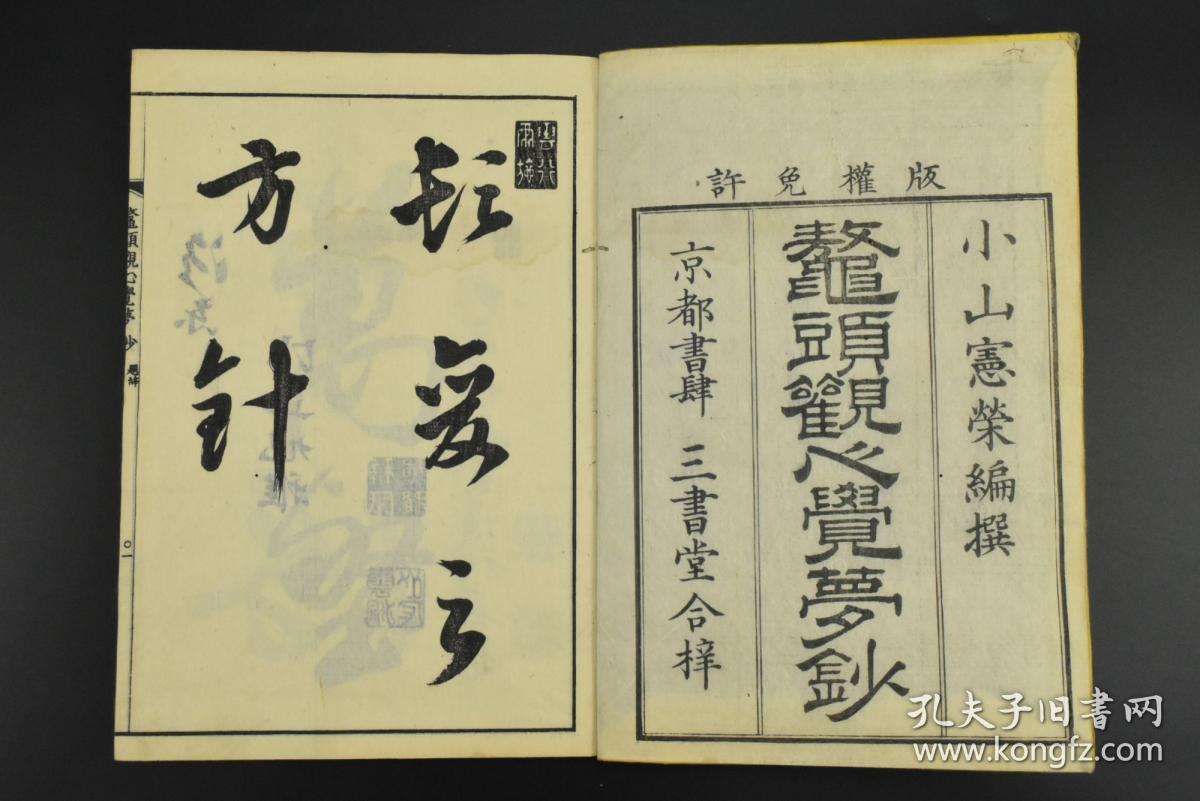 版權免許
小山憲榮編撰
鼇頭觀心覺夢鈔
京都書肆 三書堂合梓
雲行雨施
之
方針
鼇頭觀心覺夢鈔
〇一
孔夫子旧书网
www.kongfz.com